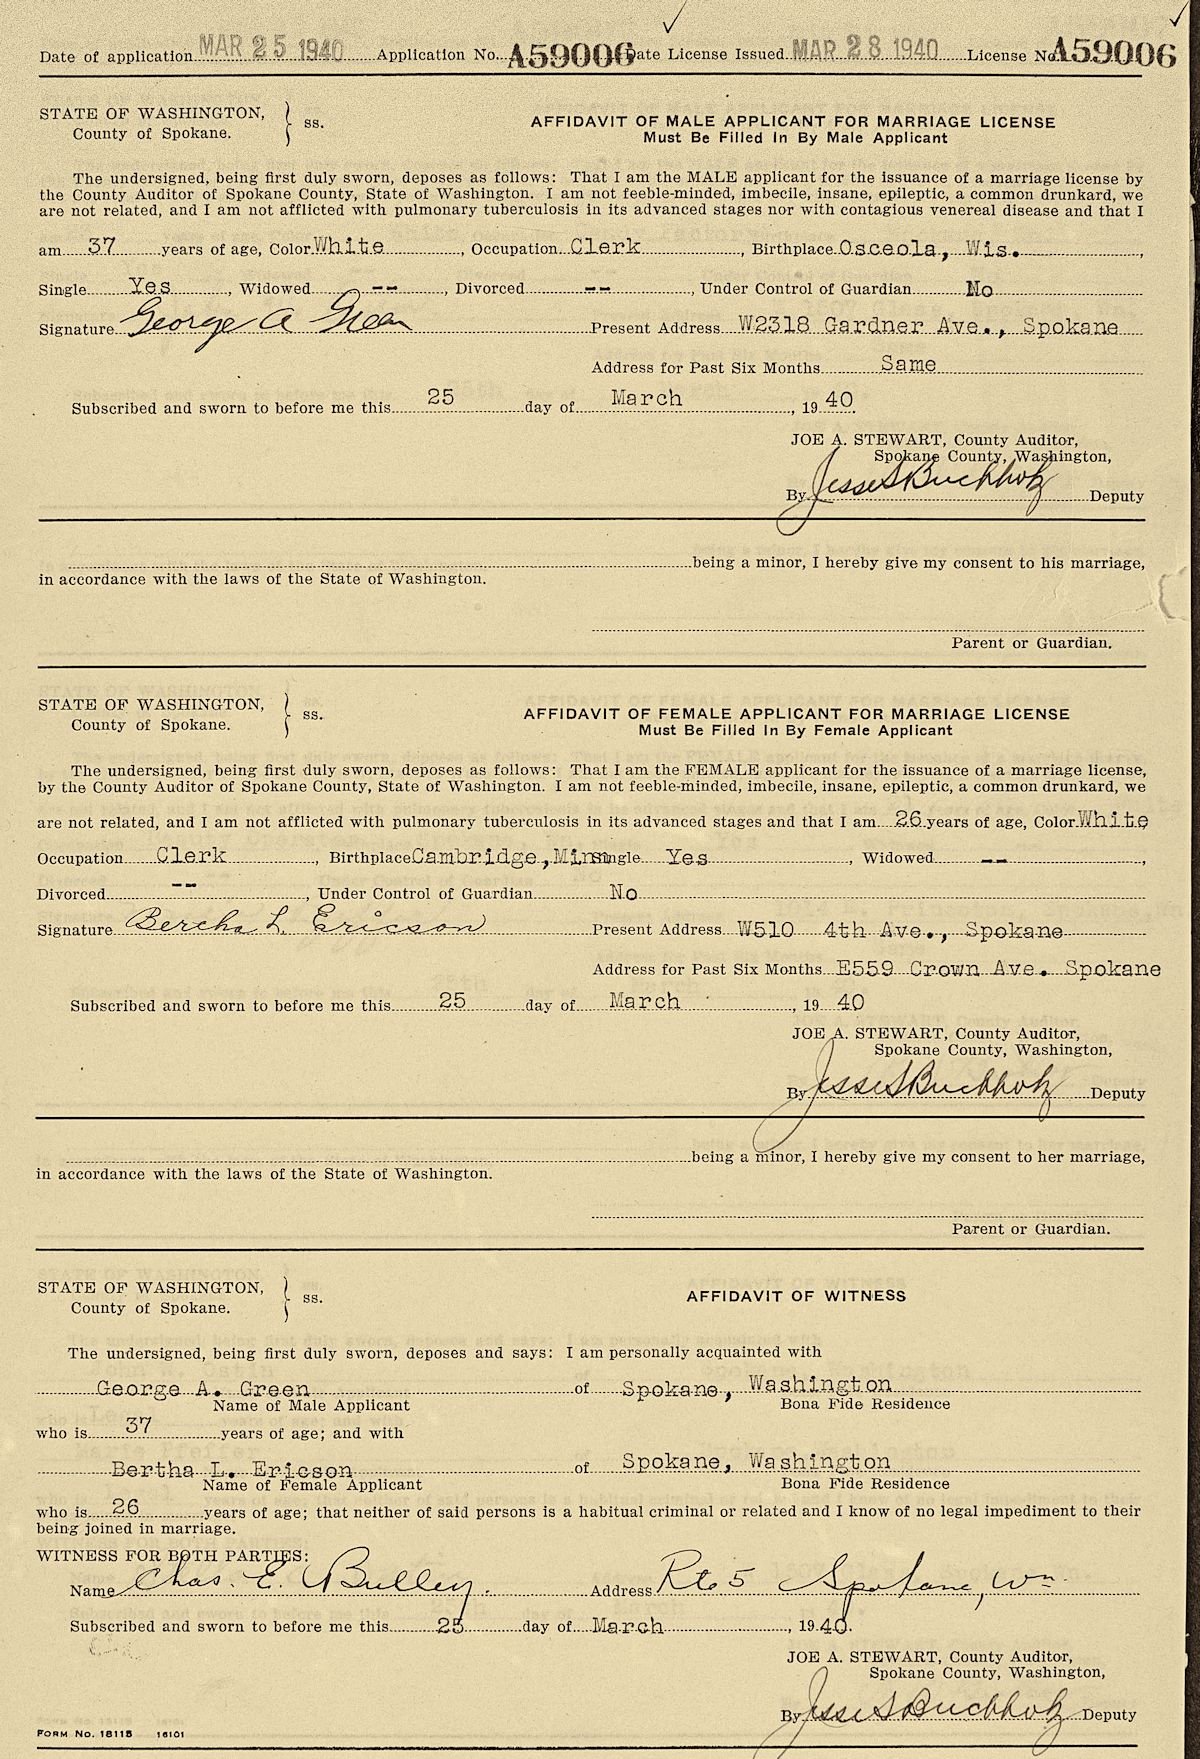 Date of application MAR 25 1940 Application No. A59006 Date License Issued MAR 28 1940 License No. A59006
STATE OF WASHINGTON,
County of Spokane.
ss.
AFFIDAVIT OF MALE APPLICANT FOR MARRIAGE LICENSE
Must Be Filled In By Male Applicant
The undersigned, being first duly sworn, deposes as follows: That I am the MALE applicant for the issuance of a marriage license by
the County Auditor of Spokane County, State of Washington. I am not feeble-minded, imbecile, insane, epileptic, a common drunkard, we
are not related, and I am not afflicted with pulmonary tuberculosis in its advanced stages nor with contagious venereal disease and that I
am 37 years of age, Color White, Occupation Clerk, Birthplace Osceola, Wis.,
Single Yes, Widowed --, Divorced --, Under Control of Guardian No
Signature George A Green Present Address W2318 Gardner Ave., Spokane
Address for Past Six Months Same
Subscribed and sworn to before me this 25 day of March, 19 40.
JOE A. STEWART, County Auditor,
Spokane County, Washington,
By Jesse S Buchholz Deputy
being a minor, I hereby give my consent to his marriage,
in accordance with the laws of the State of Washington.
Parent or Guardian.
STATE OF WASHINGTON,
County of Spokane.
ss.
AFFIDAVIT OF FEMALE APPLICANT FOR MARRIAGE LICENSE
Must Be Filled In By Female Applicant
The undersigned, being first duly sworn, deposes as follows: That I am the FEMALE applicant for the issuance of a marriage license,
by the County Auditor of Spokane County, State of Washington. I am not feeble-minded, imbecile, insane, epileptic, a common drunkard, we
are not related, and I am not afflicted with pulmonary tuberculosis in its advanced stages and that I am 26 years of age, Color White
Occupation Clerk, Birthplace Cambridge, Minn Single Yes, Widowed --,
Divorced --, Under Control of Guardian No
Signature Bertha L. Ericson Present Address W510 4th Ave., Spokane
Address for Past Six Months E559 Crown Ave. Spokane
Subscribed and sworn to before me this 25 day of March, 19 40
JOE A. STEWART, County Auditor,
Spokane County, Washington,
By Jesse S Buchholz Deputy
being a minor, I hereby give my consent to her marriage,
in accordance with the laws of the State of Washington.
Parent or Guardian.
STATE OF WASHINGTON,
County of Spokane.
ss.
AFFIDAVIT OF WITNESS
The undersigned, being first duly sworn, deposes and says: I am personally acquainted with
George A. Green of Spokane, Washington
Name of Male Applicant Bona Fide Residence
who is 37 years of age; and with
Bertha L. Ericson of Spokane, Washington
Name of Female Applicant Bona Fide Residence
who is 26 years of age; that neither of said persons is a habitual criminal or related and I know of no legal impediment to their
being joined in marriage.
WITNESS FOR BOTH PARTIES:
Name Chas. E. Bulley. Address Rte 5 Spokane, Wn.
Subscribed and sworn to before me this 25 day of March, 19 40.
JOE A. STEWART, County Auditor,
Spokane County, Washington,
By Jesse S Buchholz Deputy
FORM No. 18115 16101